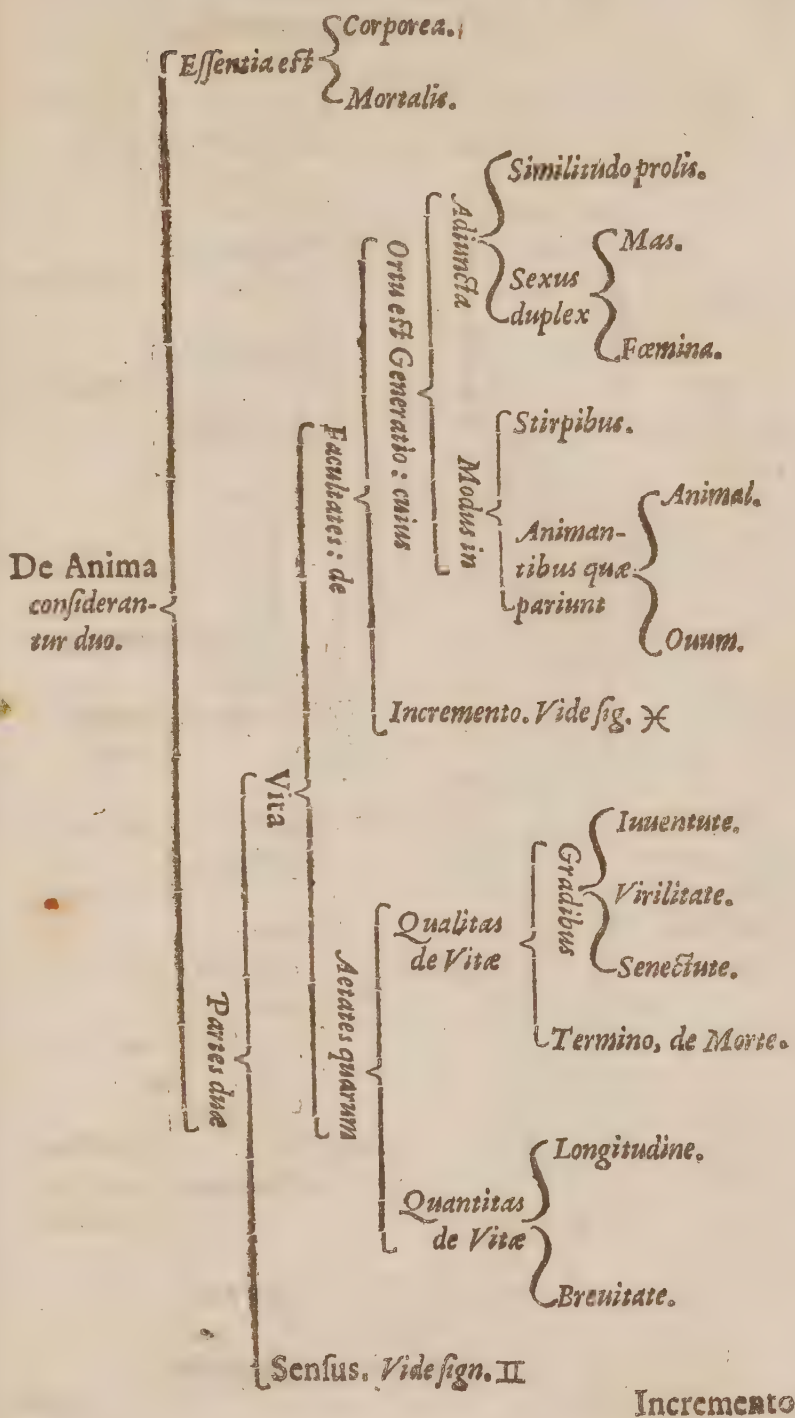 De Anima
consideran-
tur duo.
Eſſentia eſt
Corporea.
Mortalis.
Partes duæ
Vita
Facultates: de
Ortu eſt Generatio: cuius
Adiuncta
Similitudo prolis.
Sexus
duplex
Mas.
Fœmina.
Modus in
Stirpibus.
Animan-
tibus quæ
pariunt
Animal.
Ouum.
Incremento. Vide ſig. ♓
Aetates quarum
Qualitas
de Vitæ
Gradibus
Iuuentute.
Virilitate.
Senectute.
Termino, de Morte.
Quantitas
de Vitæ
Longitudine.
Breuitate.
Senſus. Vide ſign. ♊
Incremento